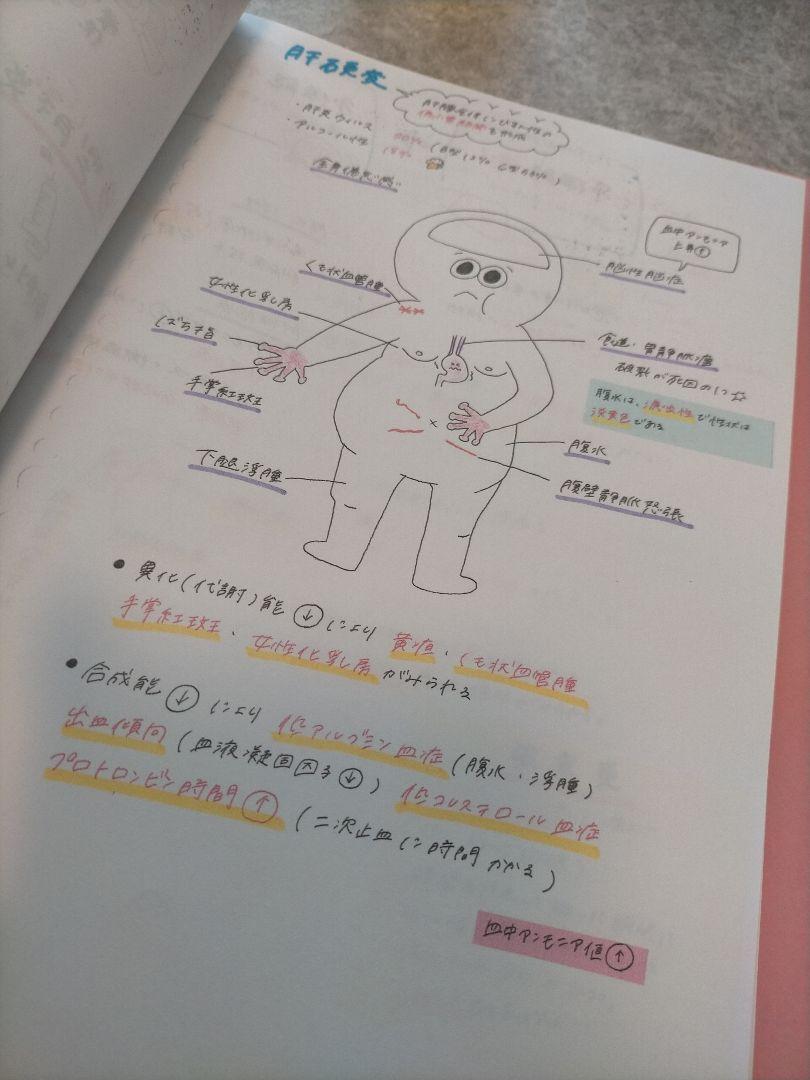 肝硬変
肝臓全体にびまん性の
偽小葉結節を形成
・肝炎ウィルス 80% (B型 12% C型 68%)
・アルコール性 18%
全身倦怠感
血中アンモニア
上昇↑
肝性脳症
くも状血管腫
女性化乳房
ばち指
手掌紅斑
下腿浮腫
食道・胃静脈瘤
破裂が死因の1つ☆
腹水は、漏出性で性状は
淡黄色である
腹水
腹壁静脈怒張
● 異化(代謝)能↓により 黄疸・くも状血管腫
手掌紅斑・女性化乳房 がみられる
● 合成能↓により 低アルブミン血症(腹水・浮腫)
出血傾向(血液凝固因子↓) 低コレステロール血症
プロトロンビン時間↑(二次止血に時間かかる)
血中アンモニア値↑